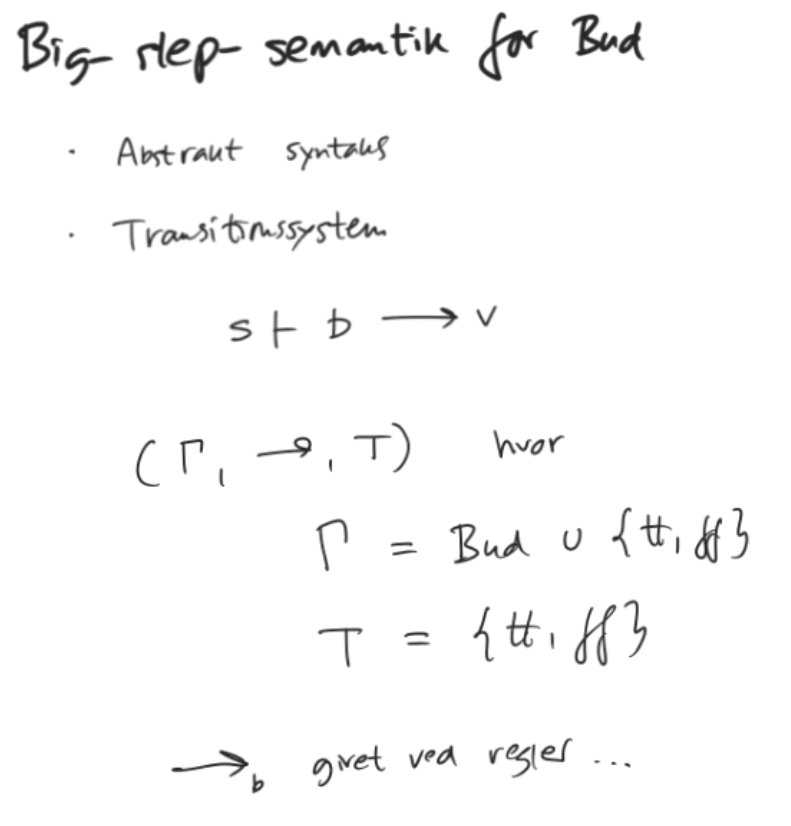 Big-step-semantik for Bud
· Abstrakt syntaks
· Transitionssystem
s ⊢ b → v
(Γ, →, T) hvor
Γ = Bud ∪ {tt, ff}
T = {tt, ff}
→b givet ved regler ...